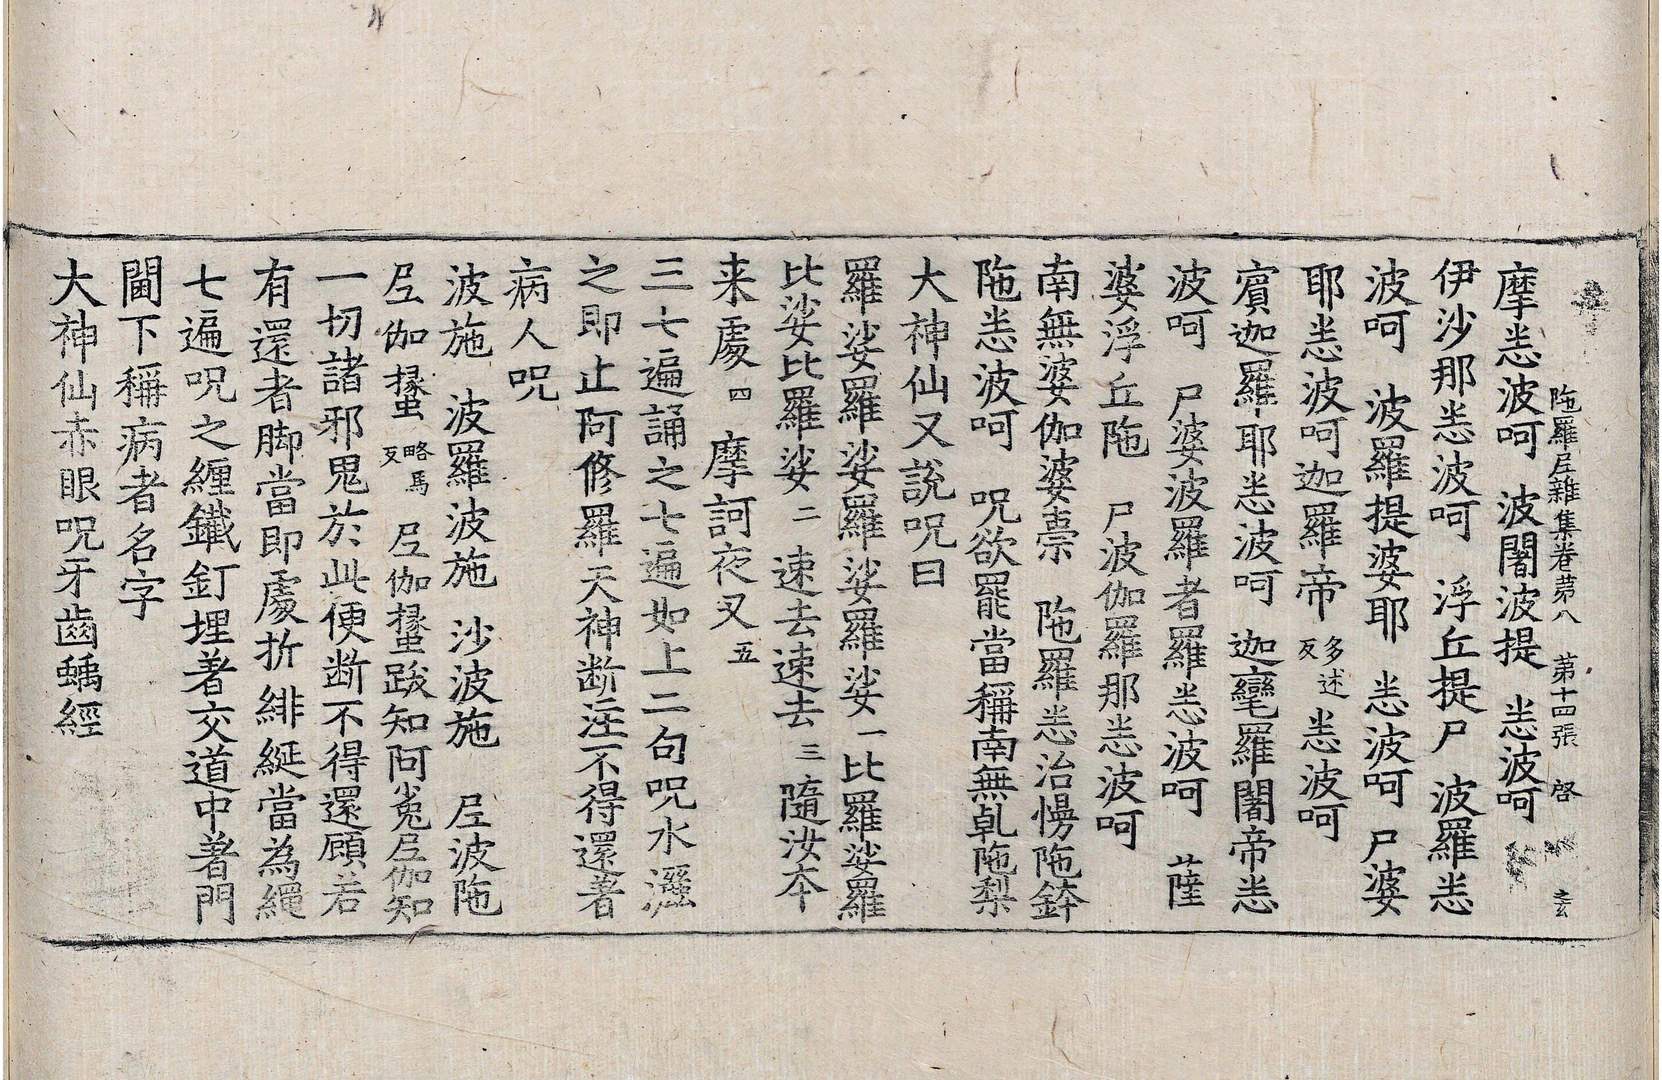 陁羅𡰱雜集卷第八　第十四張　啓　玄
摩恙波呵　波闍波提　恙波呵
伊沙那恙波呵　浮丘提尸　波羅恙
波呵　波羅提婆耶　恙波呵　尸婆
耶恙波呵迦羅帝多述反恙波呵
賔迦羅耶恙波呵　迦㲠羅闍帝恙
波呵　尸婆波羅者羅恙波呵　薩
婆浮丘陁　尸波伽羅那恙波呵
南無婆伽婆柰　陁羅恙治愣陁𨥥
陁恙波呵　呪欲罷當稱南無乹陁梨
大神仙又說呪曰
羅娑羅娑羅娑羅娑一比羅娑羅
比娑比羅娑二　速去速去三隨汝夲
来處四　摩訶夜叉五
三七遍誦之七遍如上二句呪水灑
之即止阿修羅天神断注不得還著
病人呪
波施　波羅波施　沙波施　𡰱波陁
𡰱伽㨿略馬反　𡰱伽㨿跋知阿㝹𡰱伽知
一切諸邪鬼於此便断不得還顧若
有還者脚當即處折緋綖當為繩
七遍呪之纏鐵釘埋著交道中著門
閫下稱病者名字
大神仙赤眼呪牙齒齲經